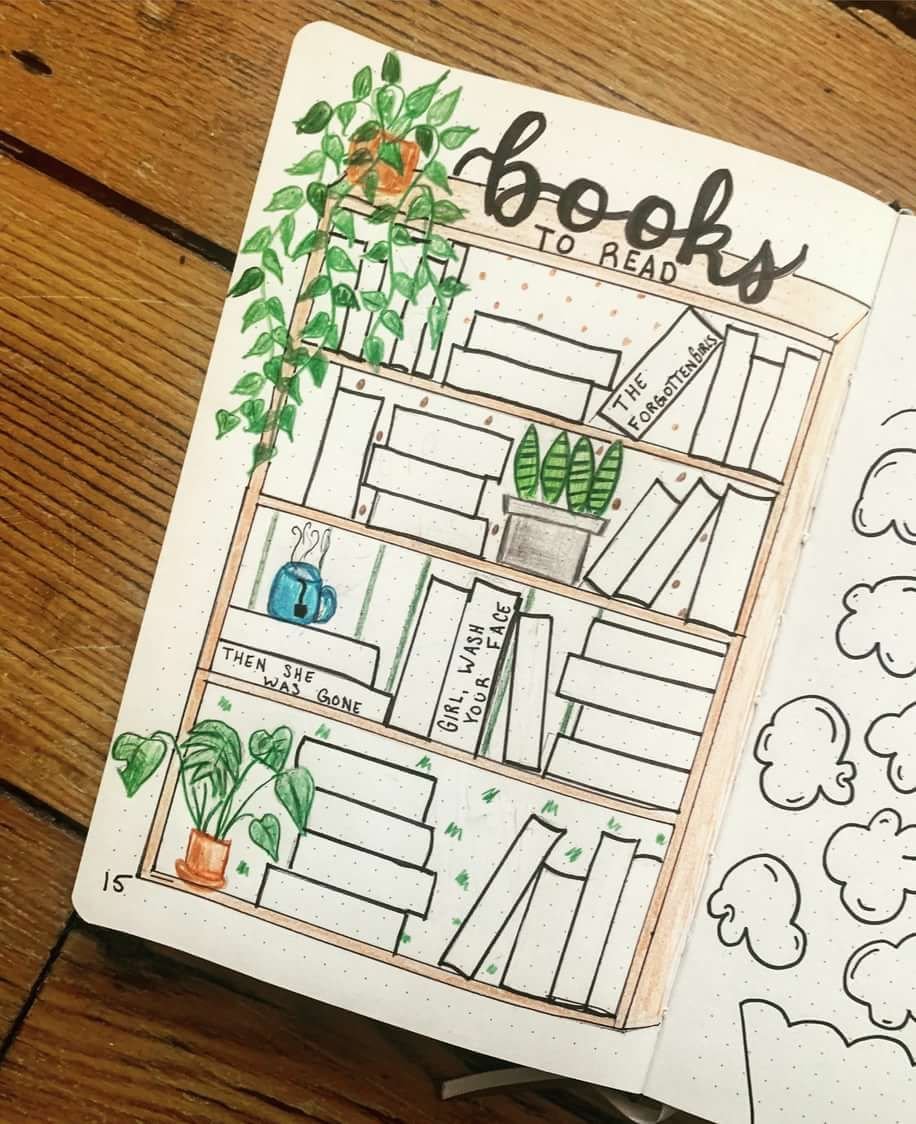 books
TO READ
THE
FORGOTTEN GIRLS
THEN SHE
WAS GONE
GIRL, WASH
YOUR FACE
15